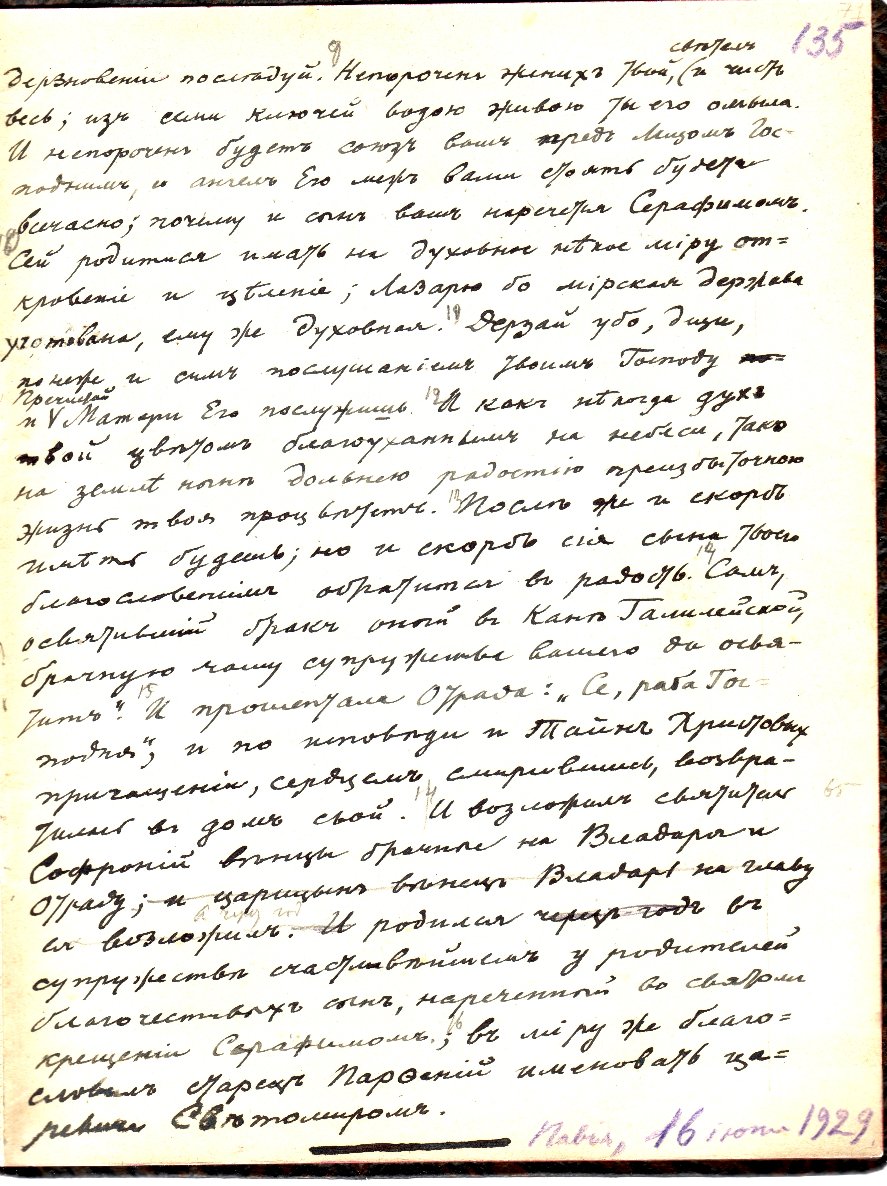 135
свѣтелъ
дерзновеніи послѣдуй. Непорочень женихъ твой, (и чистъ
весь; изъ семи ключей водою живою ты его омыла.
И непорочень будетъ союзъ вашъ предъ Лицомъ Гос-
поднимъ, и ангелъ Его межъ вами стоять будетъ
всечасно; почему и сынъ вашъ наречется Серафимомъ.
10 Сей родитися имать на духовное нѣкое міру от=
кровеніе и цѣленіе; Лазарю бо мірская держава
уготована, ему же духовная. 11 Дерзай убо, дщи,
понеже и симъ послушаніемъ твоимъ Господу по=
Пречистой
и V Матери Его послужишь. 12 И какъ нѣкогда духъ
твой цвѣтомъ благоуханнымъ на небеси, тако
на землѣ нынѣ дольнею радостію преизбыточною
жизнь твоя процвѣтетъ. 13 Послѣ же и скорбь
имѣть будешь; но и скорбь сія сына твоего
благословеніемъ обратится въ радость. 14 Самъ,
освятившій бракъ оный въ Канѣ Галилейской,
брачную чашу супружества вашего да освя-
титъ". 15 И прошептала Отрада: „Се, раба Гос-
подня", и по исповѣди и Таинъ Христовыхъ
причащеніи, сердцемъ смирившись, возвра-
тилась въ домъ свой. И возложилъ святитель
Софроній вѣнцы брачные на Владаря и
Отраду; и царицынъ вѣнецъ Владарь на главу
ея возложилъ. И родился черезъ годъ въ
а черезъ годъ
супружествѣ счастливѣйшемъ у родителей
благочестивыхъ сынъ, нареченный во святомъ
крещеніи Серафимомъ; 16 въ міру же благо=
словилъ старецъ Парѳеній именовать ца=
ревича Свѣтомиромъ.
Павія, 16 іюня 1929